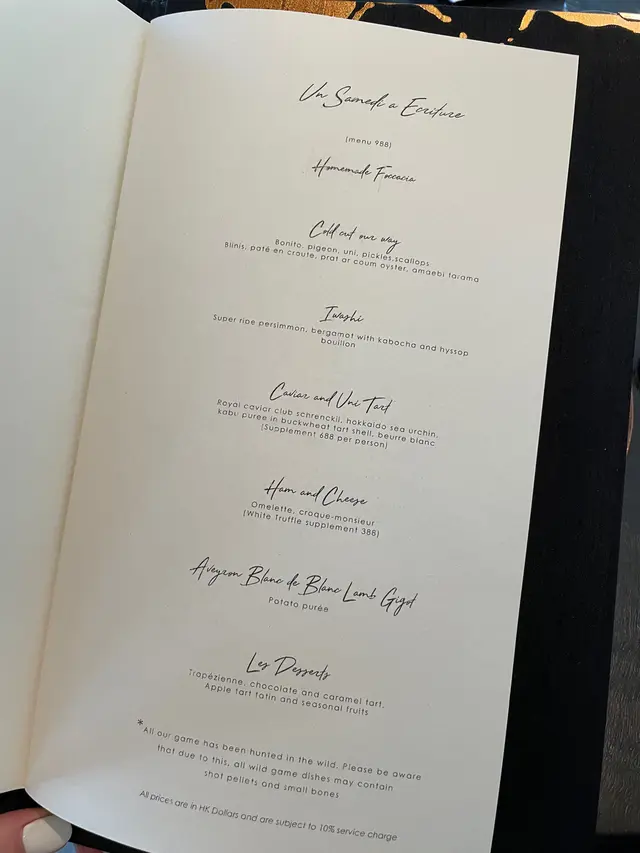 Un Samedi a Ecriture
(menu 988)
Homemade Foccacia
Cold cut our way
Bonito, pigeon, uni, pickles,scallops
Blinis, patê en croute, prat ar coum oyster, amaebi tarama
Iwashi
Super ripe persimmon, bergamot with kabocha and hyssop
bouillon
Caviar and Uni Tart
Royal caviar club schrenckii, hokkaido sea urchin,
kabu puree in buckwheat tart shell, beurre blanc
(Supplement 688 per person)
Ham and Cheese
Omelette, croque-monsieur
(White Truffle supplement 388)
Aveyron Blanc de Blanc Lamb Gigot
Potato purée
Les Desserts
Tropézienne, chocolate and caramel tart,
Apple tart tatin and seasonal fruits
*All our game has been hunted in the wild. Please be aware
that due to this, all wild game dishes may contain
shot pellets and small bones
All prices are in HK Dollars and are subject to 10% service charge